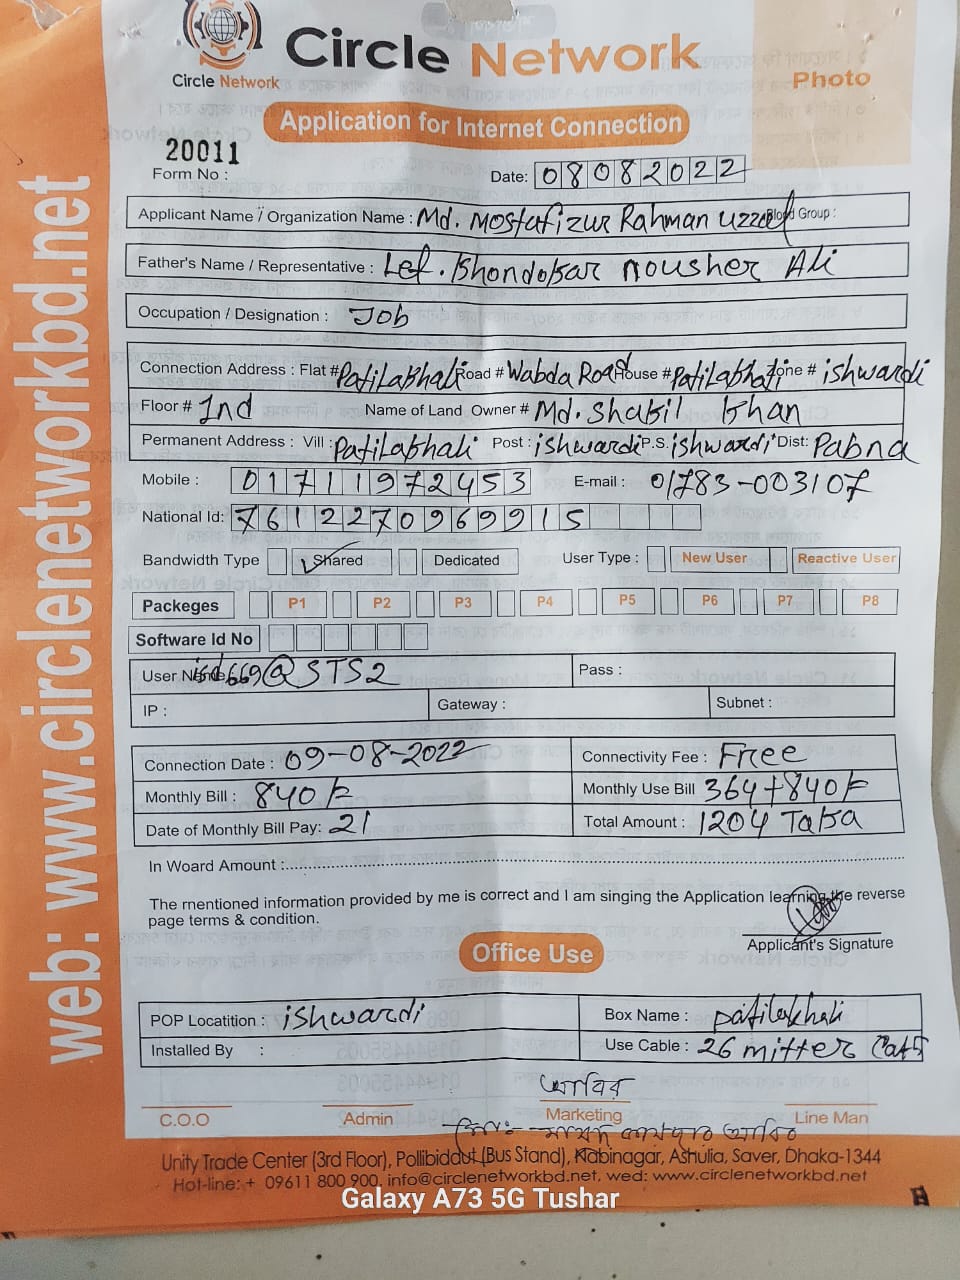 Circle Network
Circle Network
Photo
Application for Internet Connection
20011
Form No :
Date: 08082022
Applicant Name / Organization Name : Md. Mostafizur Rahman uzzal Blood Group :
Father's Name / Representative : Lef. Khondokar nousher Ali
Occupation / Designation : Job
Connection Address : Flat # Patilakhali Road # Wabda Road House # Patilakhali Zone # ishwardi
Floor # 2nd Name of Land Owner # Md. Shakil Khan
Permanent Address : Vill : Patilakhali Post : ishwardi P.S. ishwardi Dist: Pabna
Mobile : 01711972453 E-mail : 01783-003107
National Id: 7612270969915
Bandwidth Type Shared Dedicated User Type : New User Reactive User
Packeges P1 P2 P3 P4 P5 P6 P7 P8
Software Id No
User Name isd669@STS2 Pass :
IP : Gateway : Subnet :
Connection Date : 09-08-2022 Connectivity Fee : Free
Monthly Bill : 840 Monthly Use Bill 364+840
Date of Monthly Bill Pay: 21 Total Amount : 1204 Taka
In Woard Amount :
The mentioned information provided by me is correct and I am singing the Application learning the reverse
page terms & condition.
Applicant's Signature
Office Use
POP Locatition : ishwardi Box Name : patilakhali
Installed By : Use Cable : 26 mitter Cat5
আবির
C.O.O Admin Marketing Line Man
আবির
Unity Trade Center (3rd Floor), Pollibiddut (Bus Stand), Kabinagar, Ashulia, Saver, Dhaka-1344
Hot-line: + 09611 800 900, info@circlenetworkbd.net, wed: www.circlenetworkbd.net
Galaxy A73 5G Tushar
web: www.circlenetworkbd.net